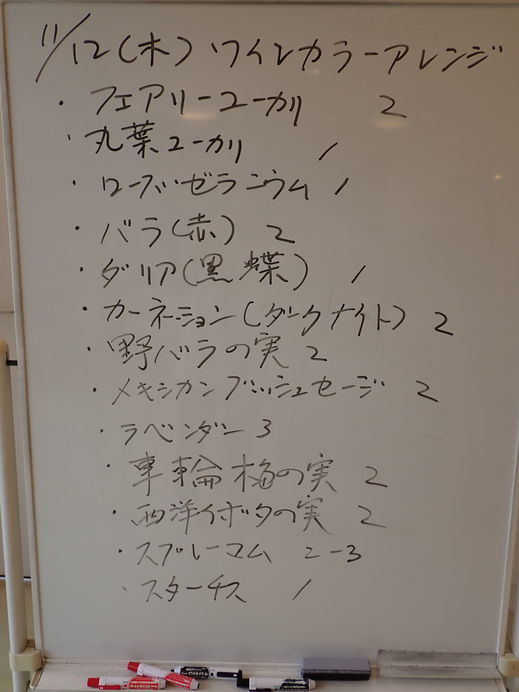 11/12(木) ワインカラーアレンジ
・フェアリーユーカリ 2
・丸葉ユーカリ 1
・ローズゼラニウム 1
・バラ(赤) 2
・ダリア(黒蝶) 1
・カーネーション(ダークナイト) 2
・野バラの実 2
・メキシカンブッシュセージ 2
・ラベンダー 3
・車輪梅の実 2
・西洋イボタの実 2
・スプレーマム 2-3
・スターチス 1